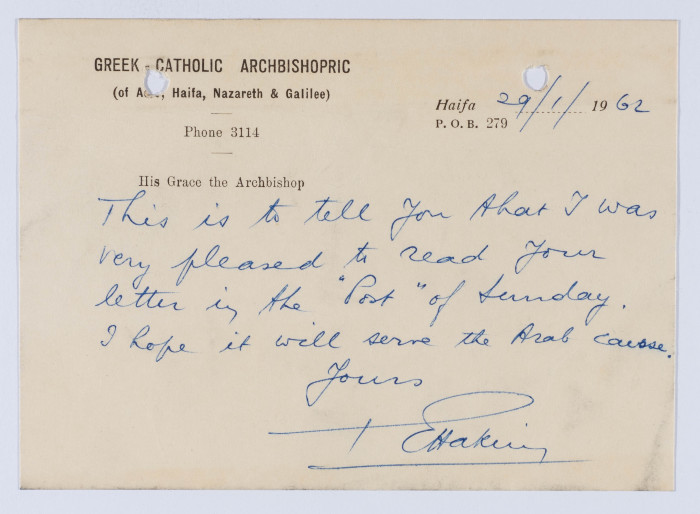 GREEK - CATHOLIC ARCHBISHOPRIC
(of Acre, Haifa, Nazareth & Galilee)
Phone 3114
Haifa 29/1/ 1962
P. O. B. 279
His Grace the Archbishop
This is to tell you that I was
very pleased to read your
letter in the "Post" of Sunday.
I hope it will serve the Arab cause.
Yours
+ G Hakim